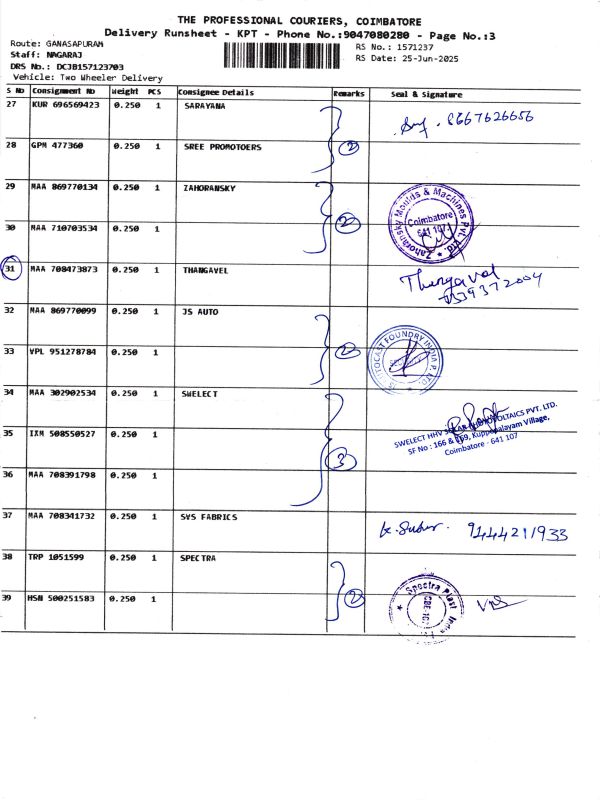 THE PROFESSIONAL COURIERS, COIMBATORE
Delivery Runsheet - KPT - Phone No.:9047080280 - Page No.:3
Route: GANASAPURAM
RS No.: 1571237
Staff: NAGARAJ
RS Date: 25-Jun-2025
DRS No.: DCJB157123703
Vehicle: Two Wheeler Delivery
S No Consignment No Weight PCS Consignee Details Remarks Seal & Signature
27 KUR 696569423 0.250 1 SARAYANA
8667626656
28 GPM 477360 0.250 1 SREE PROMOTOERS 2
29 MAA 869770134 0.250 1 ZAHORANSKY
Zahoransky Moulds & Machines Pvt. Ltd.
Coimbatore
641 107
30 MAA 710703534 0.250 1 2
31 MAA 708473873 0.250 1 THANGAVEL
Thangavel
9339372004
32 MAA 869770099 0.250 1 JS AUTO
JS AUTOCAST FOUNDRY INDIA P. LTD
33 VPL 951278784 0.250 1 2
34 MAA 302902534 0.250 1 SWELECT
SWELECT HHV SOLAR PHOTOVOLTAICS PVT. LTD.
SF No : 166 & 169, Kuppepalayam Village,
Coimbatore - 641 107
35 IXM 508550527 0.250 1 3
36 MAA 708391798 0.250 1
37 MAA 708341732 0.250 1 SVS FABRICS
9144211933
38 TRP 1051599 0.250 1 SPECTRA
Spectra Plast India
CBE-107
39 HSN 500251583 0.250 1 2